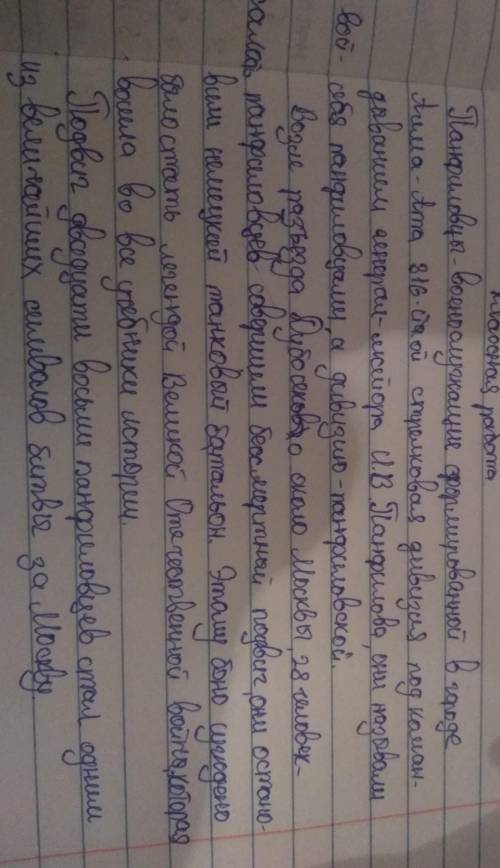 Классная работа
Панфиловцы-военнослужащие сформированной в городе
Алма-Ата 316-ой стрелковая дивизия под коман-
дыванием генерал-майора И.В. Панфилова, они называли
себя панфиловцами, а дивизию-панфиловской.
Возле разъезда Дубосеково около Москвы, 28 человек-
панфиловцев совершили бессмертный подвиг, они остано-
вили немецкой танковый батальон. Этому было суждено
было стать легендой Великой Отечественной войны, которая
вошла во все учебники истории.
Подвиг двадцати восьми панфиловцев стал одним
из величайших символов битвы за Москву.
вой-